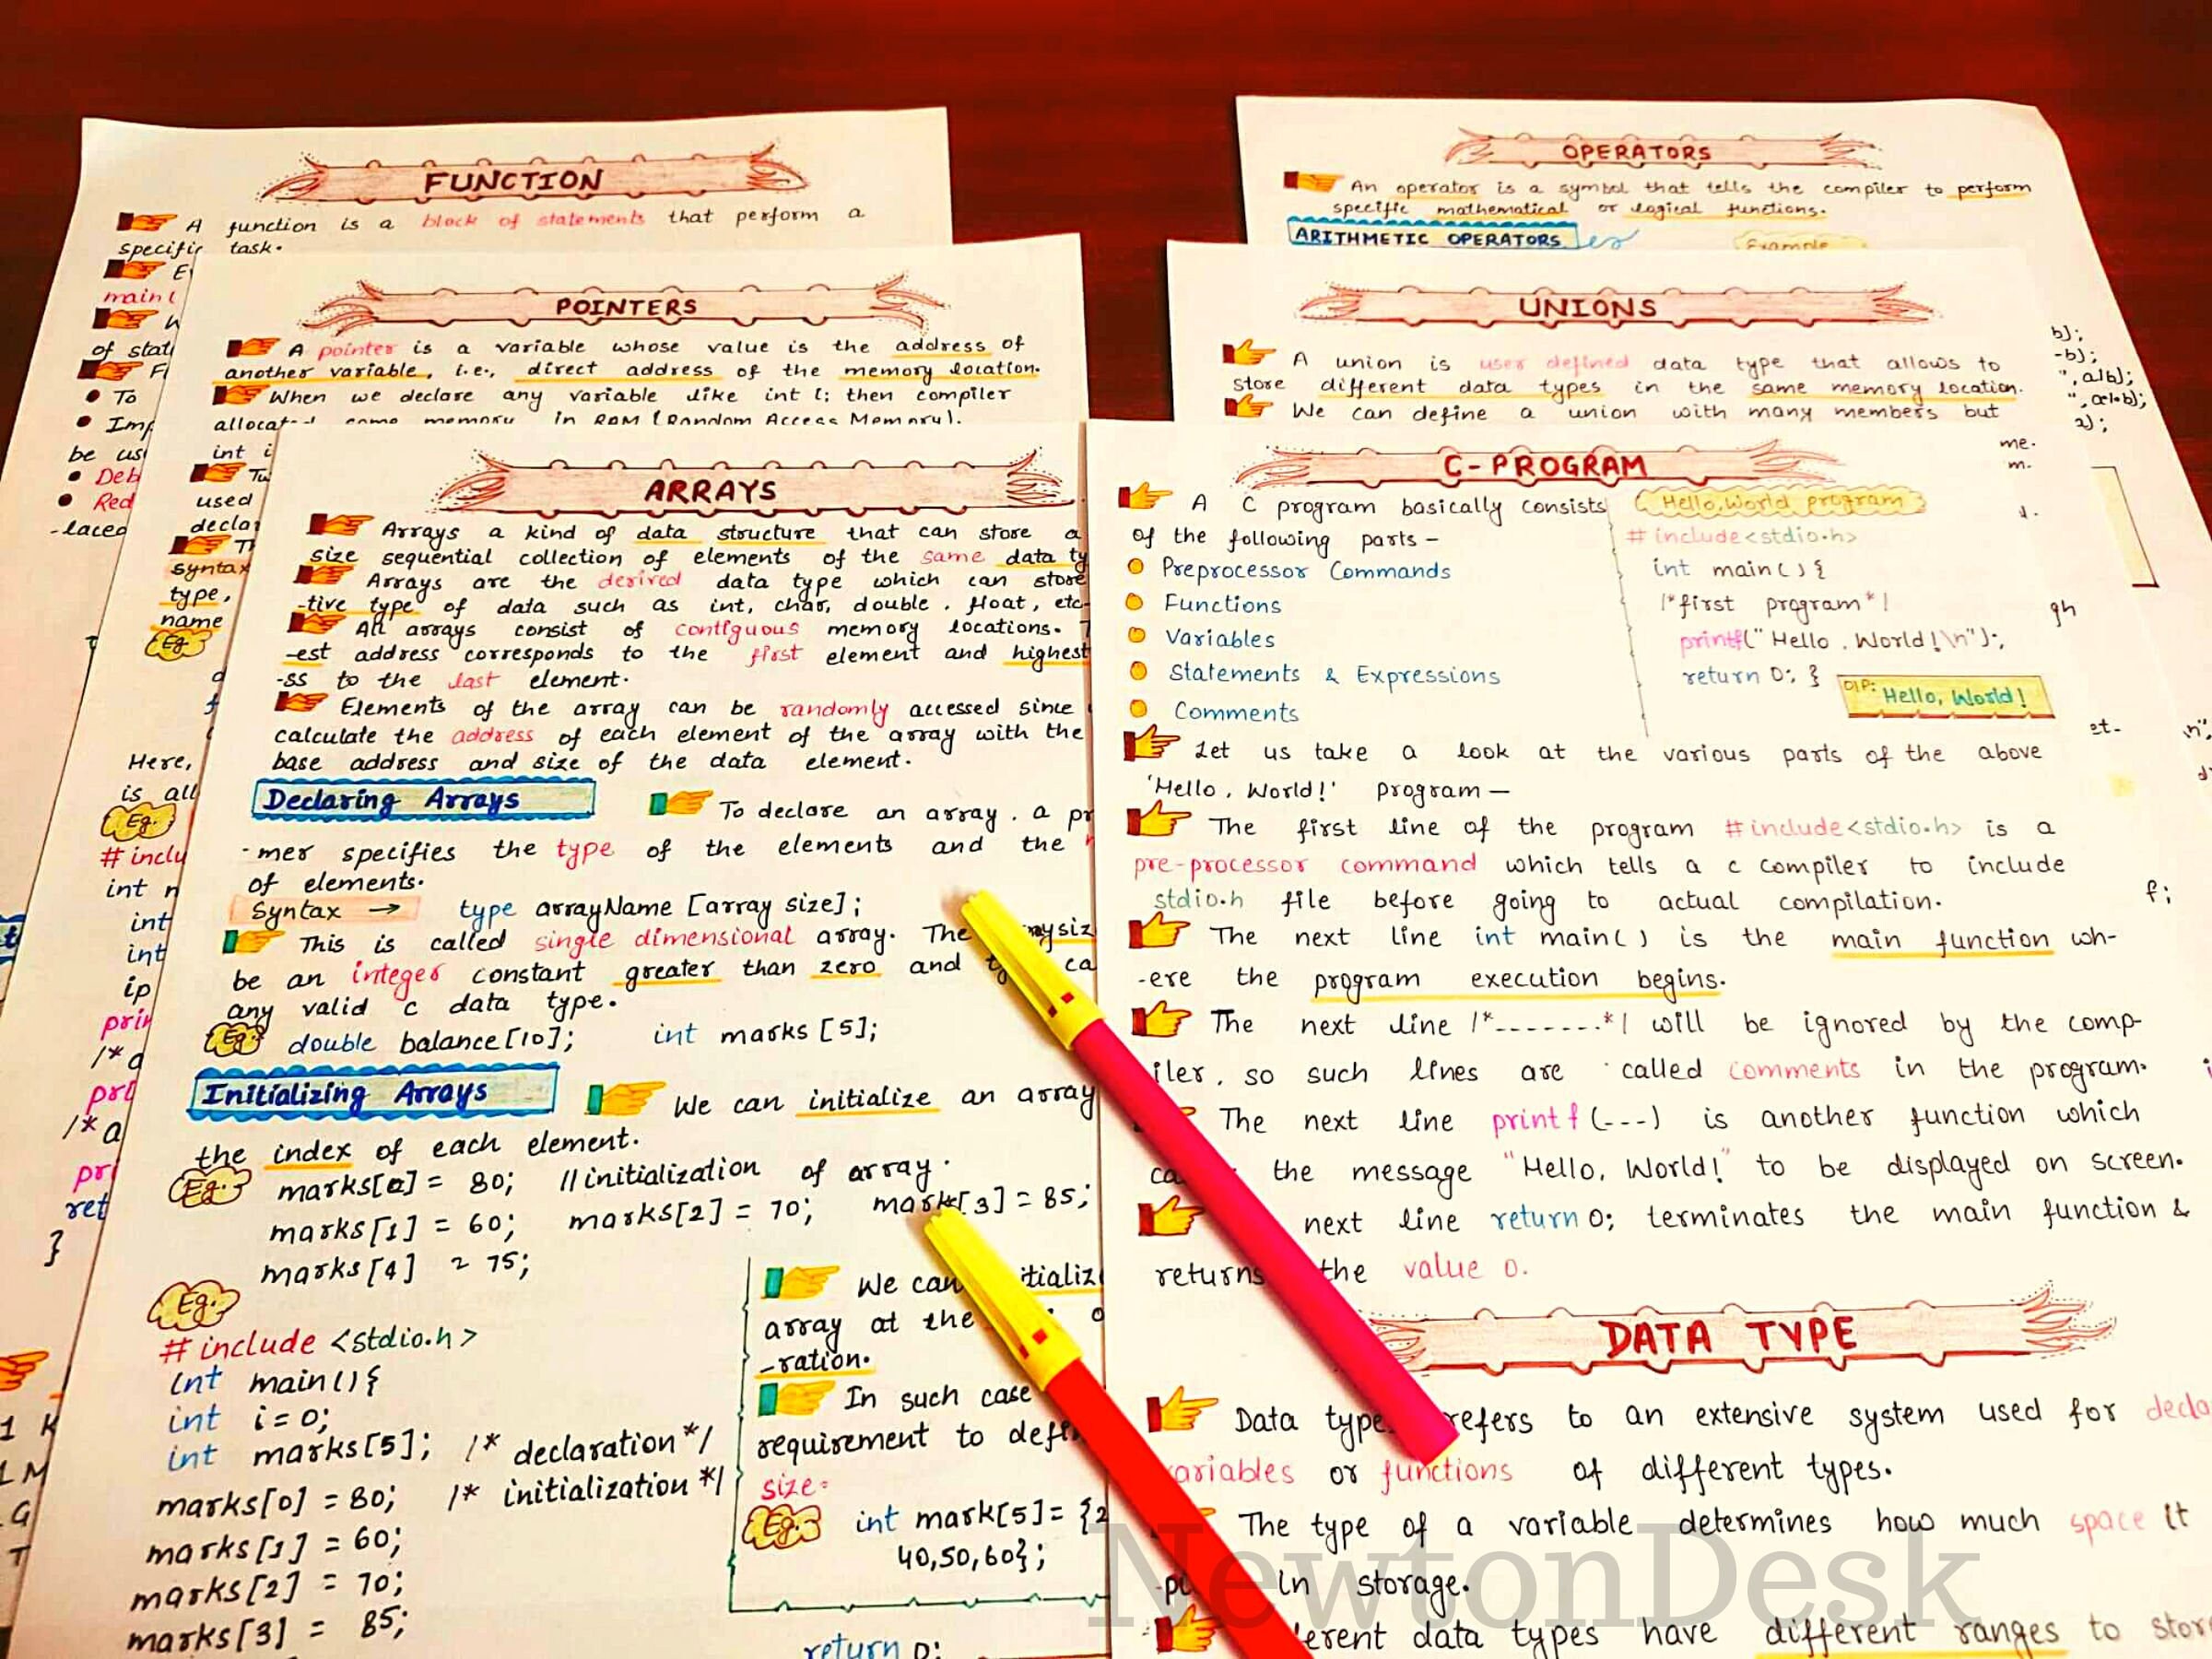 FUNCTION
A function is a block of statements that perform a
specific task.
main(
of stat
To
Imp
be us
Deb
Red
-laced
POINTERS
A pointer is a variable whose value is the address of
another variable, i.e., direct address of the memory location.
When we declare any variable like int i; then compiler
allocated some memory in RAM (Random Access Memory).
int i
used
declar
syntax
type,
name
Eg.
Here,
is all
Eg.
# inclu
int
int
ip
prin
ret
}
ARRAYS
Arrays a kind of data structure that can store a
size sequential collection of elements of the same data ty
Arrays are the desired data type which can store
-tive type of data such as int, char, double, float, etc.
All arrays consist of contiguous memory locations.
-est address corresponds to the first element and highest
-ss to the last element.
Elements of the array can be randomly accessed since
calculate the address of each element of the array with the
base address and size of the data element.
Declaring Arrays
To declare an array, a pr
-mer specifies the type of the elements and the
of elements.
Syntax → type arrayName [array size];
This is called single dimensional array. The siz
be an integer constant greater than zero and ca
any valid c data type.
Eg: double balance[10]; int marks [5];
Initializing Arrays
We can initialize an array
the index of each element.
Eg: marks[0] = 80; //initialization of array.
marks[1] = 60; marks[2] = 70; mark[3] = 85;
marks[4] = 75;
Eg:
# include <stdio.h>
int main(){
int i=0;
int marks[5]; /* declaration */
marks[0] = 80; /* initialization */
marks[1] = 60;
marks[2] = 70;
marks[3] = 85;
We can itializ
array at the
-ration.
In such case
requirement to defi
size.
Eg: int mark[5]= {2
40,50,60};
return 0;
OPERATORS
An operator is a symbol that tells the compiler to perform
specific mathematical or logical functions.
ARITHMETIC OPERATORS
Example
UNIONS
A union is user defined data type that allows to
store different data types in the same memory location.
We can define a union with many members but
b);
-b);
", a/b);
me.
m.
C-PROGRAM
A C program basically consists
of the following parts -
Preprocessor Commands
Functions
Variables
Statements & Expressions
Comments
Hello,World program
# include<stdio.h>
int main(){
/*first program*/
printf("Hello, World!\n");
return 0; }
O/P: Hello, World!
Let us take a look at the various parts of the above
'Hello, World!' program —
The first line of the program #include<stdio.h> is a
pre-processor command which tells a c compiler to include
stdio.h file before going to actual compilation.
The next line int main() is the main function wh-
-ere the program execution begins.
The next line /*-------*/ will be ignored by the comp-
iler, so such lines are called comments in the program.
The next line printf(---) is another function which
ca the message "Hello, World!" to be displayed on screen.
next line return 0; terminates the main function &
returns the value 0.
DATA TYPE
Data type refers to an extensive system used for decla
variables or functions of different types.
The type of a variable determines how much space it
in storage.
erent data types have different ranges to stor
NewtonDesk